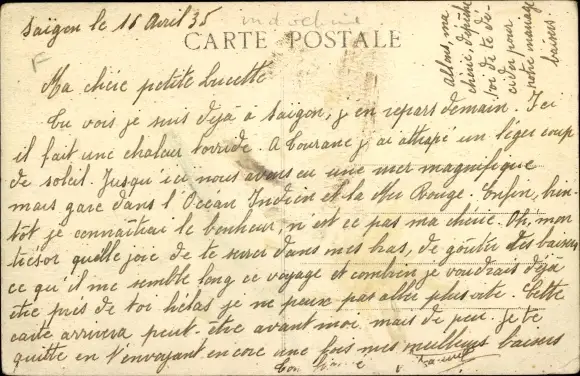 Saïgon le 15 Avril 35
Indochine
CARTE POSTALE
Ma chère petite Lucette
Tu vois je suis déjà à Saïgon, j'en repars demain. Ici
il fait une chaleur torride. A Tourane j'ai attrapé un léger coup
de soleil. Jusqu'ici nous avons eu une mer magnifique
mais gare dans l'Océan Indien et la Mer Rouge. Enfin, bien-
tôt je connaîtrai le bonheur, n'est ce pas ma chérie. Oh, mon
trésor quelle joie de te serrer dans mes bras, de goûter des baisers
ce qu'il me semble long ce voyage et combien je voudrais déjà
être près de toi hélas je ne peux pas aller plus vite. Cette
carte arrivera peut-être avant moi, mais de peu. Je te
quitte en t'envoyant encore une fois mes meilleurs baisers
Ton
Allons, ma
chérie, dépêche
toi de te dé-
cider pour
notre mariage
baisers